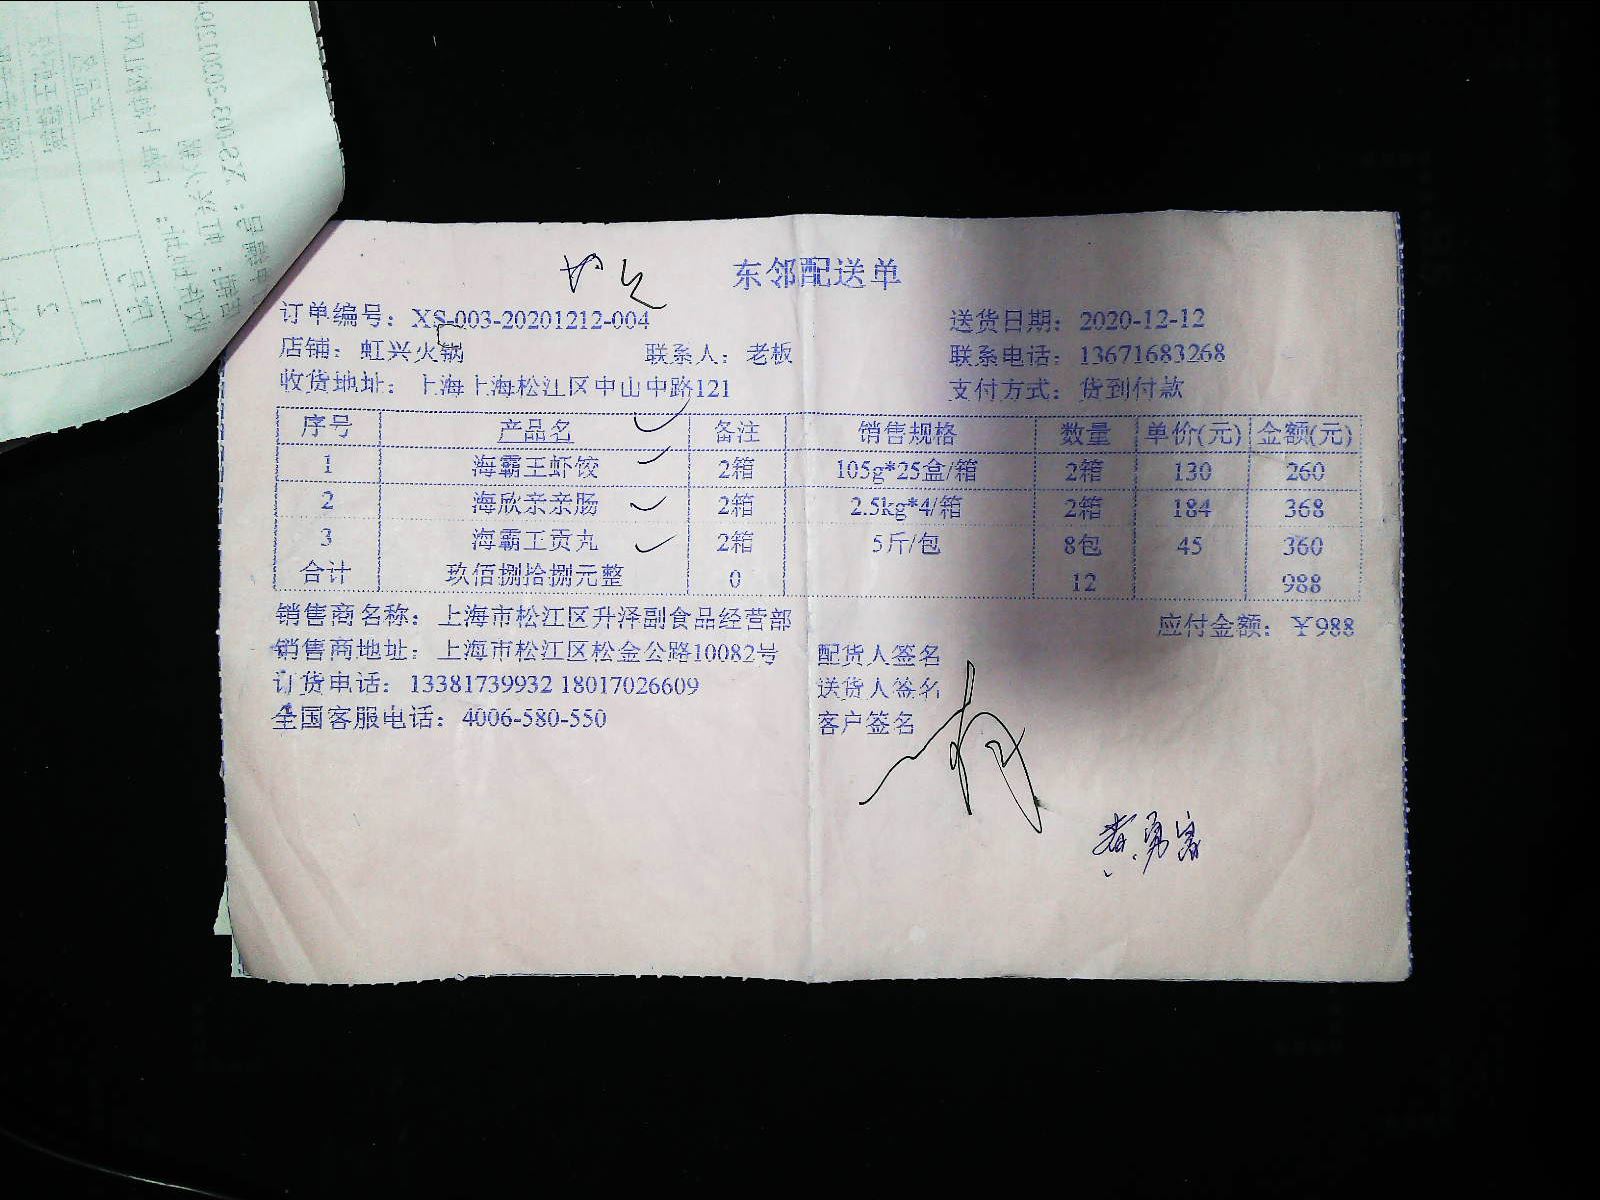 东邻配送单
订单编号：XS-003-20201212-004 送货日期：2020-12-12
店铺：虹兴火锅 联系人：老板 联系电话：13671683268
收货地址：上海上海松江区中山中路121 支付方式：货到付款
序号 产品名 备注 销售规格 数量 单价(元) 金额(元)
1 海霸王虾饺 2箱 105g*25盒/箱 2箱 130 260
2 海欣亲亲肠 2箱 2.5kg*4/箱 2箱 184 368
3 海霸王贡丸 2箱 5斤/包 8包 45 360
合计 玖佰捌拾捌元整 0 12 988
销售商名称：上海市松江区升泽副食品经营部 应付金额：￥988
销售商地址：上海市松江区松金公路10082号 配货人签名
订货电话：13381739932 18017026609 送货人签名
全国客服电话：4006-580-550 客户签名